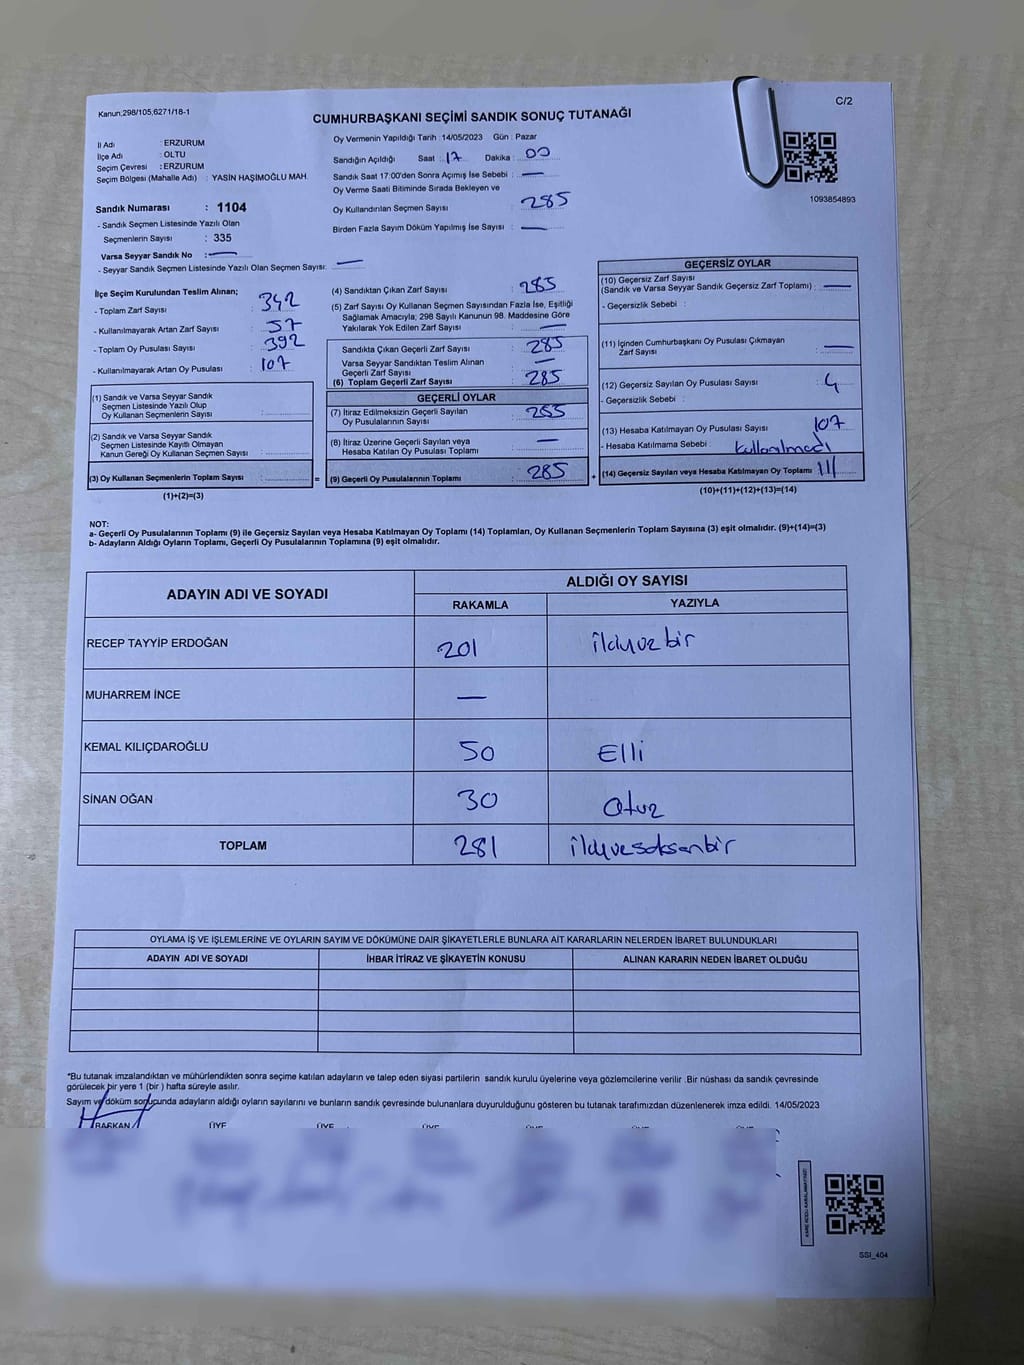 Kanun;298/105,6271/18-1
C/2
CUMHURBAŞKANI SEÇİMİ SANDIK SONUÇ TUTANAĞI
İl Adı : ERZURUM
İlçe Adı : OLTU
Seçim Çevresi : ERZURUM
Seçim Bölgesi (Mahalle Adı) : YASİN HAŞİMOĞLU MAH.
Sandık Numarası : 1104
- Sandık Seçmen Listesinde Yazılı Olan
Seçmenlerin Sayısı : 335
Varsa Seyyar Sandık No : —
- Seyyar Sandık Seçmen Listesinde Yazılı Olan Seçmen Sayısı: —
Oy Vermenin Yapıldığı Tarih : 14/05/2023 Gün : Pazar
Sandığın Açıldığı Saat : 17 Dakika : 00
Sandık Saat 17:00'den Sonra Açımış İse Sebebi : —
Oy Verme Saati Bitiminde Sırada Bekleyen ve
Oy Kullandırılan Seçmen Sayısı : 285
Birden Fazla Sayım Döküm Yapılmış İse Sayısı : —
1093854893
İlçe Seçim Kurulundan Teslim Alınan;
- Toplam Zarf Sayısı : 342
- Kullanılmayarak Artan Zarf Sayısı : 57
- Toplam Oy Pusulası Sayısı : 392
- Kullanılmayarak Artan Oy Pusulası : 107
(1) Sandık ve Varsa Seyyar Sandık
Seçmen Listesinde Yazılı Olup
Oy Kullanan Seçmenlerin Sayısı :
(2) Sandık ve Varsa Seyyar Sandık
Seçmen Listesinde Kayıtlı Olmayan
Kanun Gereği Oy Kullanan Seçmen Sayısı :
(3) Oy Kullanan Seçmenlerin Toplam Sayısı : =
(1)+(2)=(3)
(4) Sandıktan Çıkan Zarf Sayısı : 285
(5) Zarf Sayısı Oy Kullanan Seçmen Sayısından Fazla İse, Eşitliği
Sağlamak Amacıyla; 298 Sayılı Kanunun 98. Maddesine Göre
Yakılarak Yok Edilen Zarf Sayısı : —
Sandıkta Çıkan Geçerli Zarf Sayısı : 285
Varsa Seyyar Sandıktan Teslim Alınan
Geçerli Zarf Sayısı : —
(6) Toplam Geçerli Zarf Sayısı : 285
GEÇERLİ OYLAR
(7) İtiraz Edilmeksizin Geçerli Sayılan
Oy Pusulalarının Sayısı : 285
(8) İtiraz Üzerine Geçerli Sayılan veya
Hesaba Katılan Oy Pusulası Toplamı : —
(9) Geçerli Oy Pusulalarının Toplamı : 285 +
GEÇERSİZ OYLAR
(10) Geçersiz Zarf Sayısı
(Sandık ve Varsa Seyyar Sandık Geçersiz Zarf Toplamı) : —
- Geçersizlik Sebebi :
(11) İçinden Cumhurbaşkanı Oy Pusulası Çıkmayan
Zarf Sayısı : —
(12) Geçersiz Sayılan Oy Pusulası Sayısı : 4
- Geçersizlik Sebebi :
(13) Hesaba Katılmayan Oy Pusulası Sayısı : 107
- Hesaba Katılmama Sebebi : kullanılmadı
(14) Geçersiz Sayılan veya Hesaba Katılmayan Oy Toplamı : 111
(10)+(11)+(12)+(13)=(14)
NOT:
a- Geçerli Oy Pusulalarının Toplamı (9) ile Geçersiz Sayılan veya Hesaba Katılmayan Oy Toplamı (14) Toplamları, Oy Kullanan Seçmenlerin Toplam Sayısına (3) eşit olmalıdır. (9)+(14)=(3)
b- Adayların Aldığı Oyların Toplamı, Geçerli Oy Pusulalarının Toplamına (9) eşit olmalıdır.
ADAYIN ADI VE SOYADI
ALDIĞI OY SAYISI
RAKAMLA YAZIYLA
RECEP TAYYİP ERDOĞAN 201 ikiyüzbir
MUHARREM İNCE —
KEMAL KILIÇDAROĞLU 50 Elli
SİNAN OĞAN 30 Otuz
TOPLAM 281 ikiyüzseksenbir
OYLAMA İŞ VE İŞLEMLERİNE VE OYLARIN SAYIM VE DÖKÜMÜNE DAİR ŞİKAYETLERLE BUNLARA AİT KARARLARIN NELERDEN İBARET BULUNDUKLARI
ADAYIN ADI VE SOYADI İHBAR İTİRAZ VE ŞİKAYETİN KONUSU ALINAN KARARIN NEDEN İBARET OLDUĞU
*Bu tutanak imzalandıktan ve mühürlendikten sonra seçime katılan adayların ve talep eden siyasi partilerin sandık kurulu üyelerine veya gözlemcilerine verilir .Bir nüshası da sandık çevresinde
görülecek bir yere 1 (bir ) hafta süreyle asılır.
Sayım ve döküm sonucunda adayların aldığı oyların sayılarını ve bunların sandık çevresinde bulunanlara duyurulduğunu gösteren bu tutanak tarafımızdan düzenlenerek imza edildi. 14/05/2023
BAŞKAN ÜYE ÜYE ÜYE ÜYE ÜYE ÜYE
SSI_404